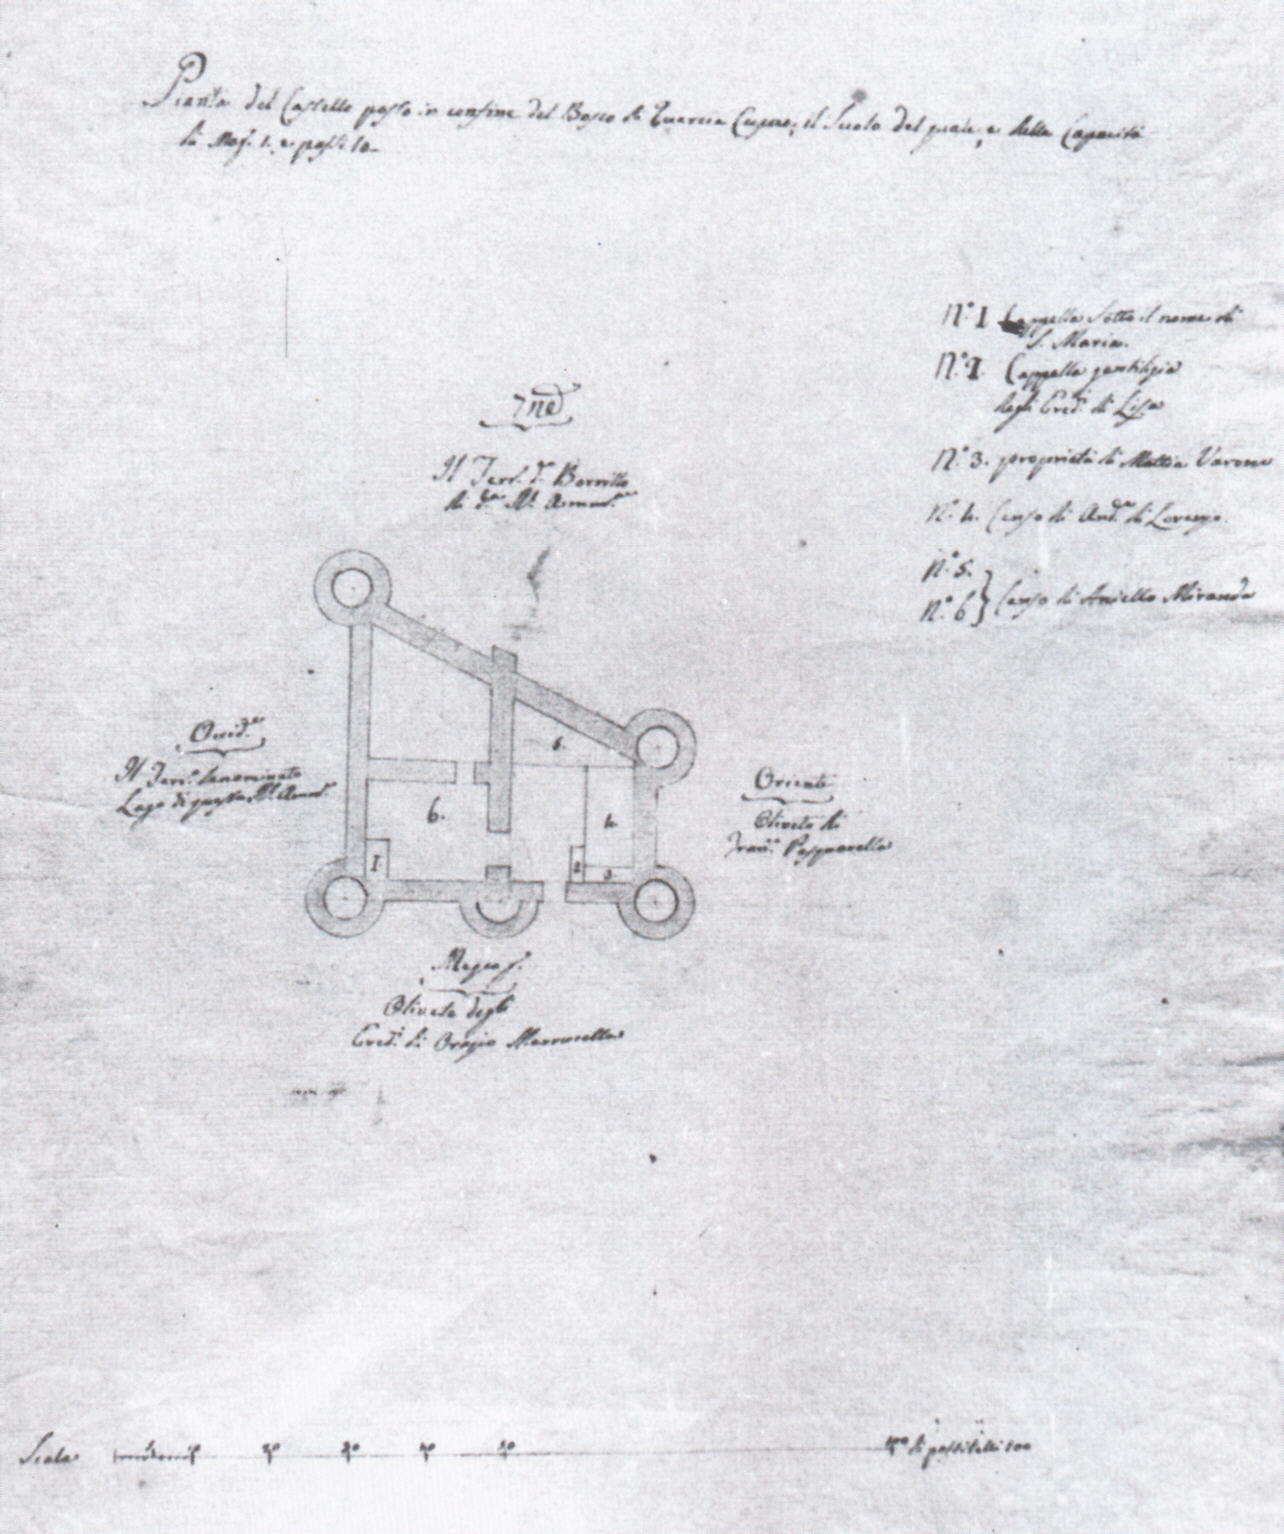 Pianta del Castello posto in confine del Bosco di Quercia Cupa, il Suolo del quale, e della Capacità
di Mog. 1. e passi 10.
N.º I Cappella sotto il nome di
S. Maria.
N.º 2. Cappella gentilizia
degli Ered.i di Lisa
N.º 3. proprietà di Mattia Varone
N.º 4. Censo di And.a di Lorenzo.
N.º 5.
N.º 6 } Censo di Aniello Miranda
Il Terr.
5.
Occid.e
Il Terr.o denominato
Lago di questa
6.
4.
Oriente
Oliveto di
Fran.
I
2
3
Mezzog.
Oliveto degli
Ered.i di Orazio
Scala
20
30
40
50
100 di passitelli 100